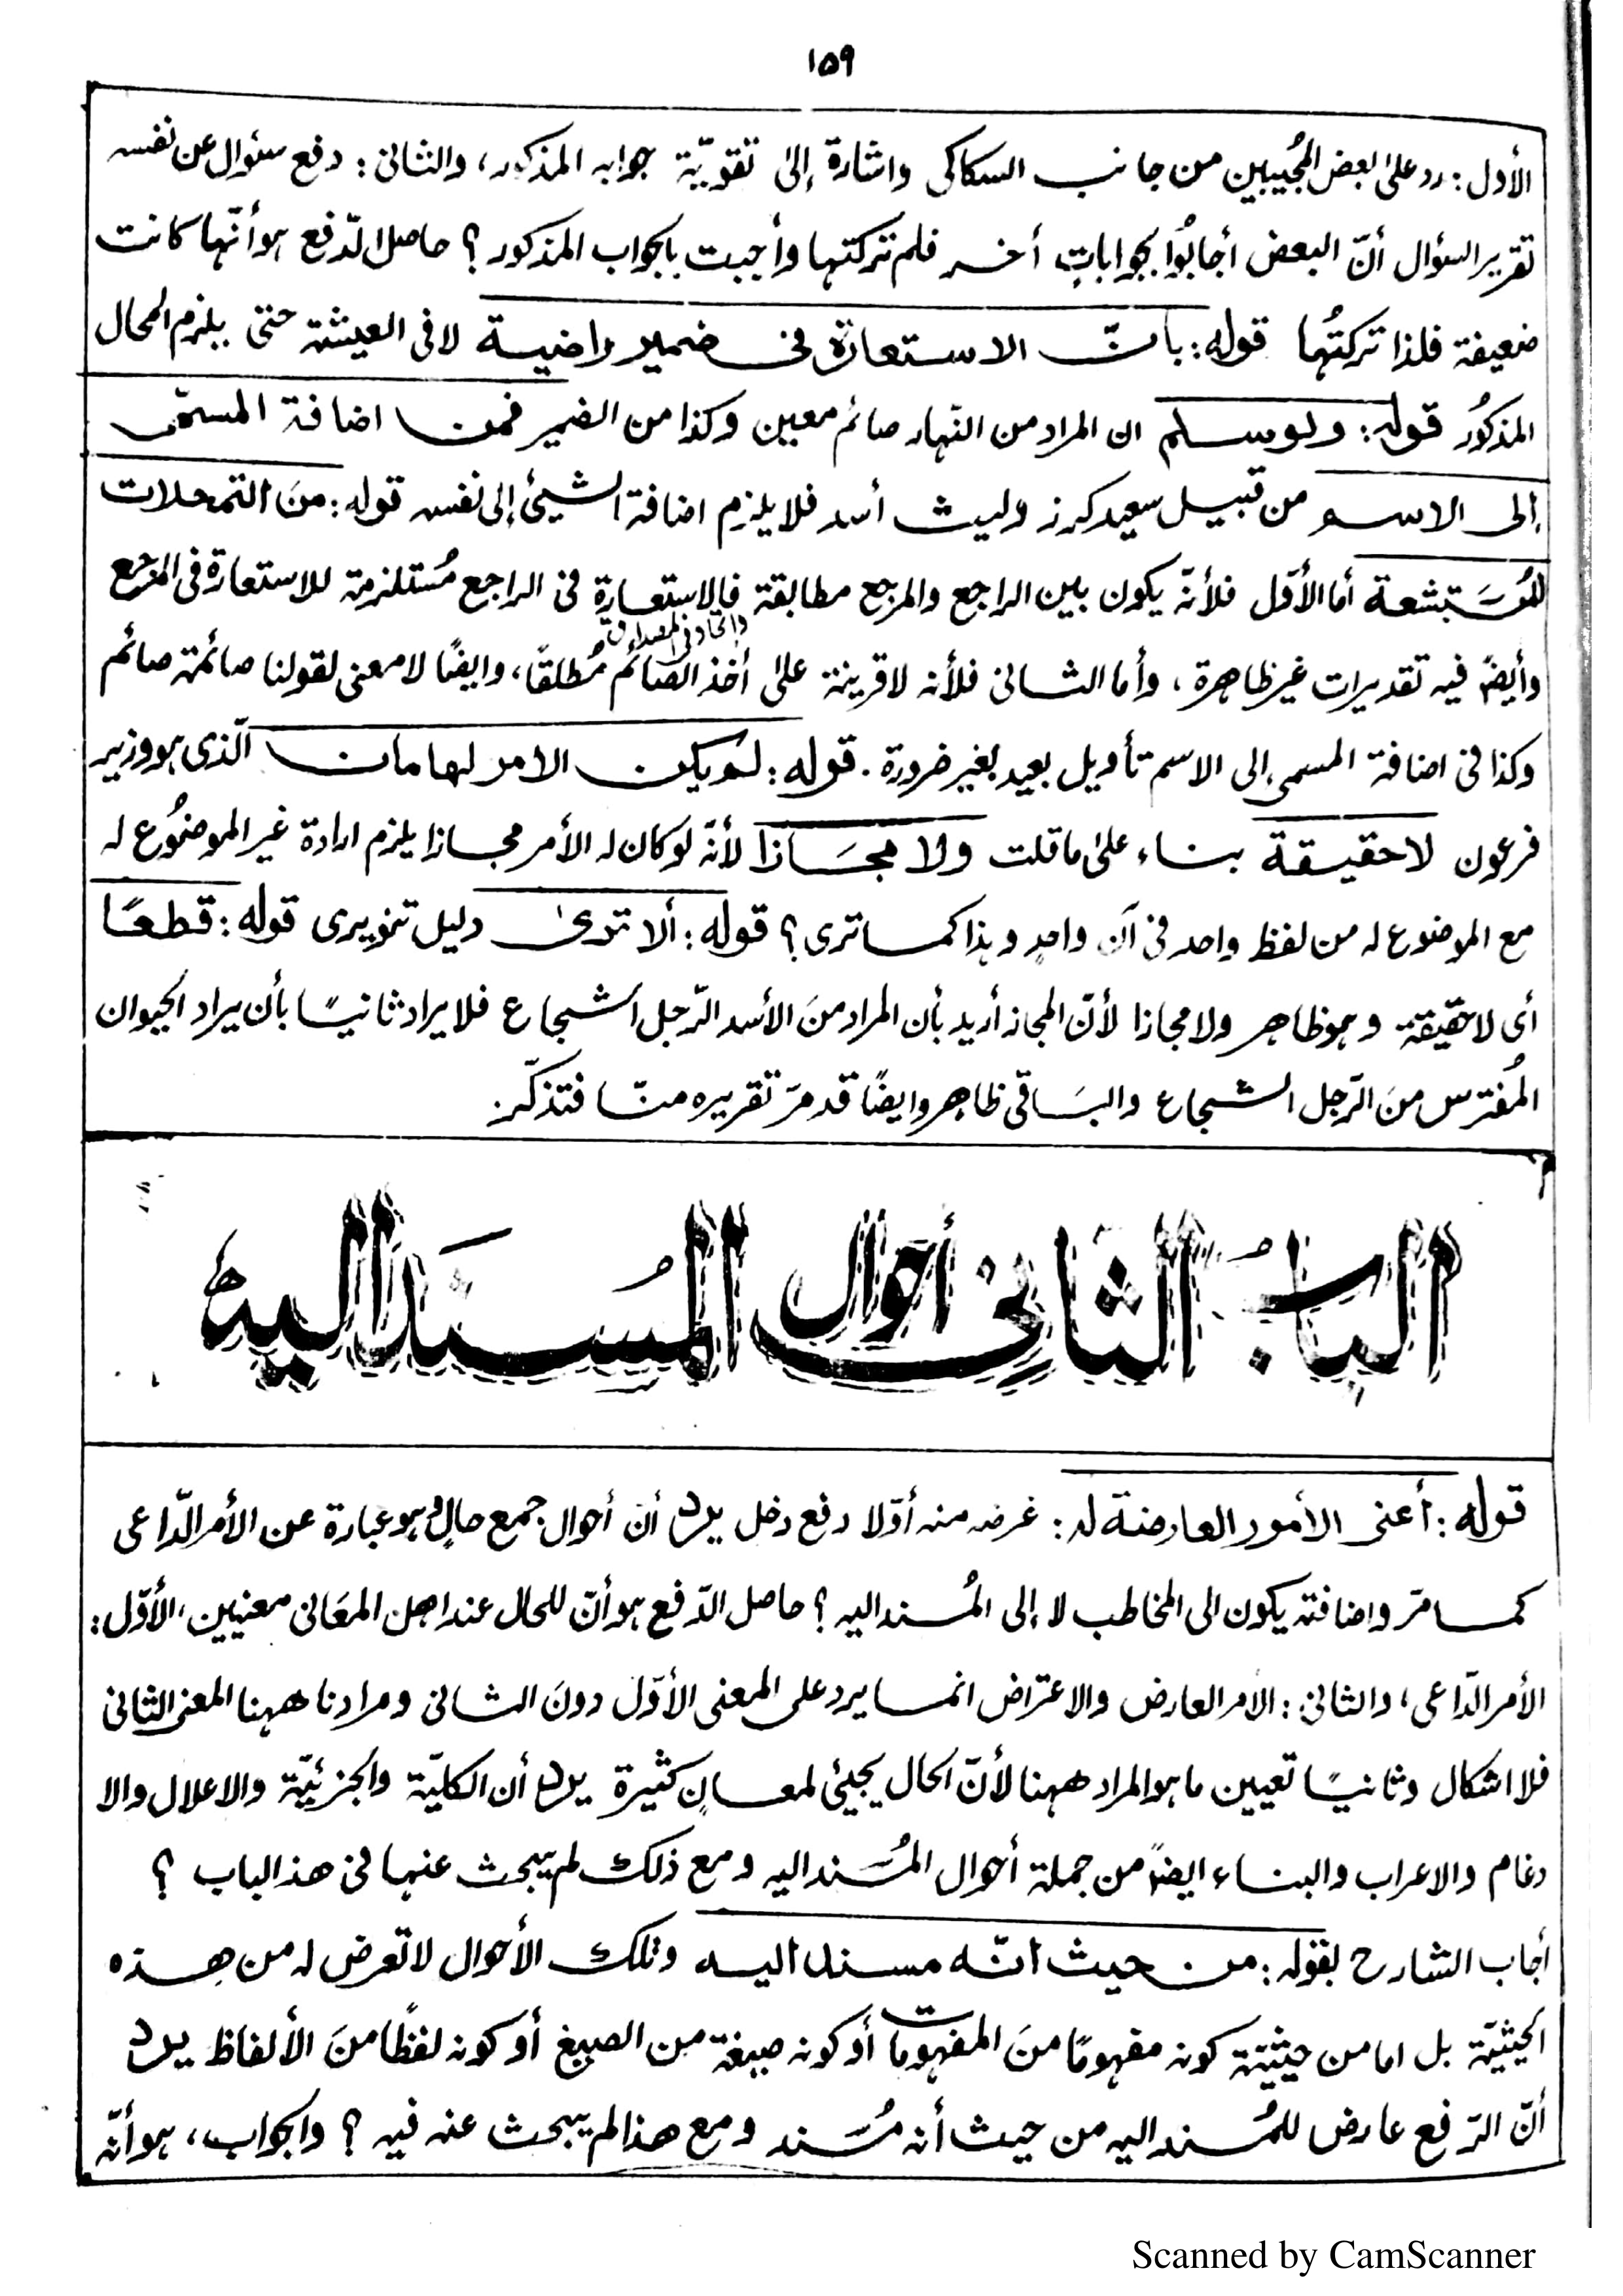 ١٥٩
الأول: رد على بعض المُجيبين من جانب السكاكى واشارة إلى تقويّة جوابه المذكور، والثانى: دفع سئوال عن نفسه
تقرير السئوال أنّ البعض أجابُوا بجواباتٍ أخر فلم تركتها وأجبت بالجواب المذكور؟ حاصل الدّفع هو أنّها كانت
ضعيفة فلذا تركتُها قوله: بانّ الاستعارة فى ضمير راضية لا فى العيشة حتى يلزم المحال
المذكُور قوله: ولو سلم ان المراد من النّهار صائم معين وكذا من الضمير فمن اضافة المسمّى
إلى الاسم من قبيل سعيد كرز وليث أسد فلا يلزم اضافة الشيئ إلى نفسه قوله: منَ التمحلات
المُستَبشعة أما الأوّل فلأنّه يكون بين الراجع والمرجع مطابقة فالاستعارة فى الراجع مُستلزمة للاستعارة فى المرجع
واتحاد فى المصداق
وأيضًا فيه تقديرات غير ظاهرة، وأما الثانى فلأنه لا قرينة على أخذ الصائم مُطلقًا، وايضًا لا معنى لقولنا صائمة صائم
وكذا فى اضافة المسمى إلى الاسم تأويل بعيد بغير ضرورة. قوله: لم يكن الامر لهامان الّذى هو وزير
فرعون لا حقيقة بناء على ما قلت ولا مجَازا لأنّه لو كان له الأمر مجازا يلزم ارادة غير الموضُوع له
مع الموضوع له من لفظ واحد فى آن واحدٍ وهذا كما ترى؟ قوله: ألا ترى دليل تنويرى قوله: قطعًا
أى لا حقيقة وهو ظاهر ولا مجازا لأنّ المجاز أريد بأن المراد منَ الأسد الرّجل الشجاع فلا يراد ثانيًا بأن يراد الحيوان
المُفترس منَ الرّجل الشجاع والبَاقى ظاهر وايضًا قد مرّ تقريره منّا فتذكّر
البابُ الثانى أحوال المُسنَد اليه
قوله: أعنى الأمور العارضة له: غرضه منه أوّلا دفع دخل يرد أن أحوال جمع حالٍ وهو عبارة عن الأمر الدّاعى
كما مرّ واضافته يكون الى المخاطب لا إلى المُسند اليه؟ حاصل الدّفع هو أنّ للحال عند اهل المعَانى معنيين، الأوّل:
الأمر الدّاعى، والثانى: الامر العارض والاعتراض انما يرد على المعنى الأوّل دونَ الثانى ومرادنا ههنا المعنى الثانى
فلا اشكال وثانيًا تعيين ما هو المراد ههنا لأنّ الحال يجيئ لمعانٍ كثيرة يرد أن الكليّة والجزئيّة والاعلال والا
دغام والاعراب والبناء ايضًا من جملة أحوال المُسند اليه ومع ذلك لم يبحث عنها فى هذ الباب ؟
أجاب الشارح بقوله: من حيث انّه مسند اليه وتلك الأحوال لا تعرض له من هذه
الحيثيّة بل اما من حيثيّة كونه مفهومًا منَ المفهومات أو كونه صيغة من الصيغ أو كونه لفظًا منَ الألفاظ يرد
أنّ الرّفع عارض للمُسند اليه من حيث أنه مُسند ومع هذا لم يبحث عنه فيه ؟ والجواب، هو أنّه
Scanned by CamScanner